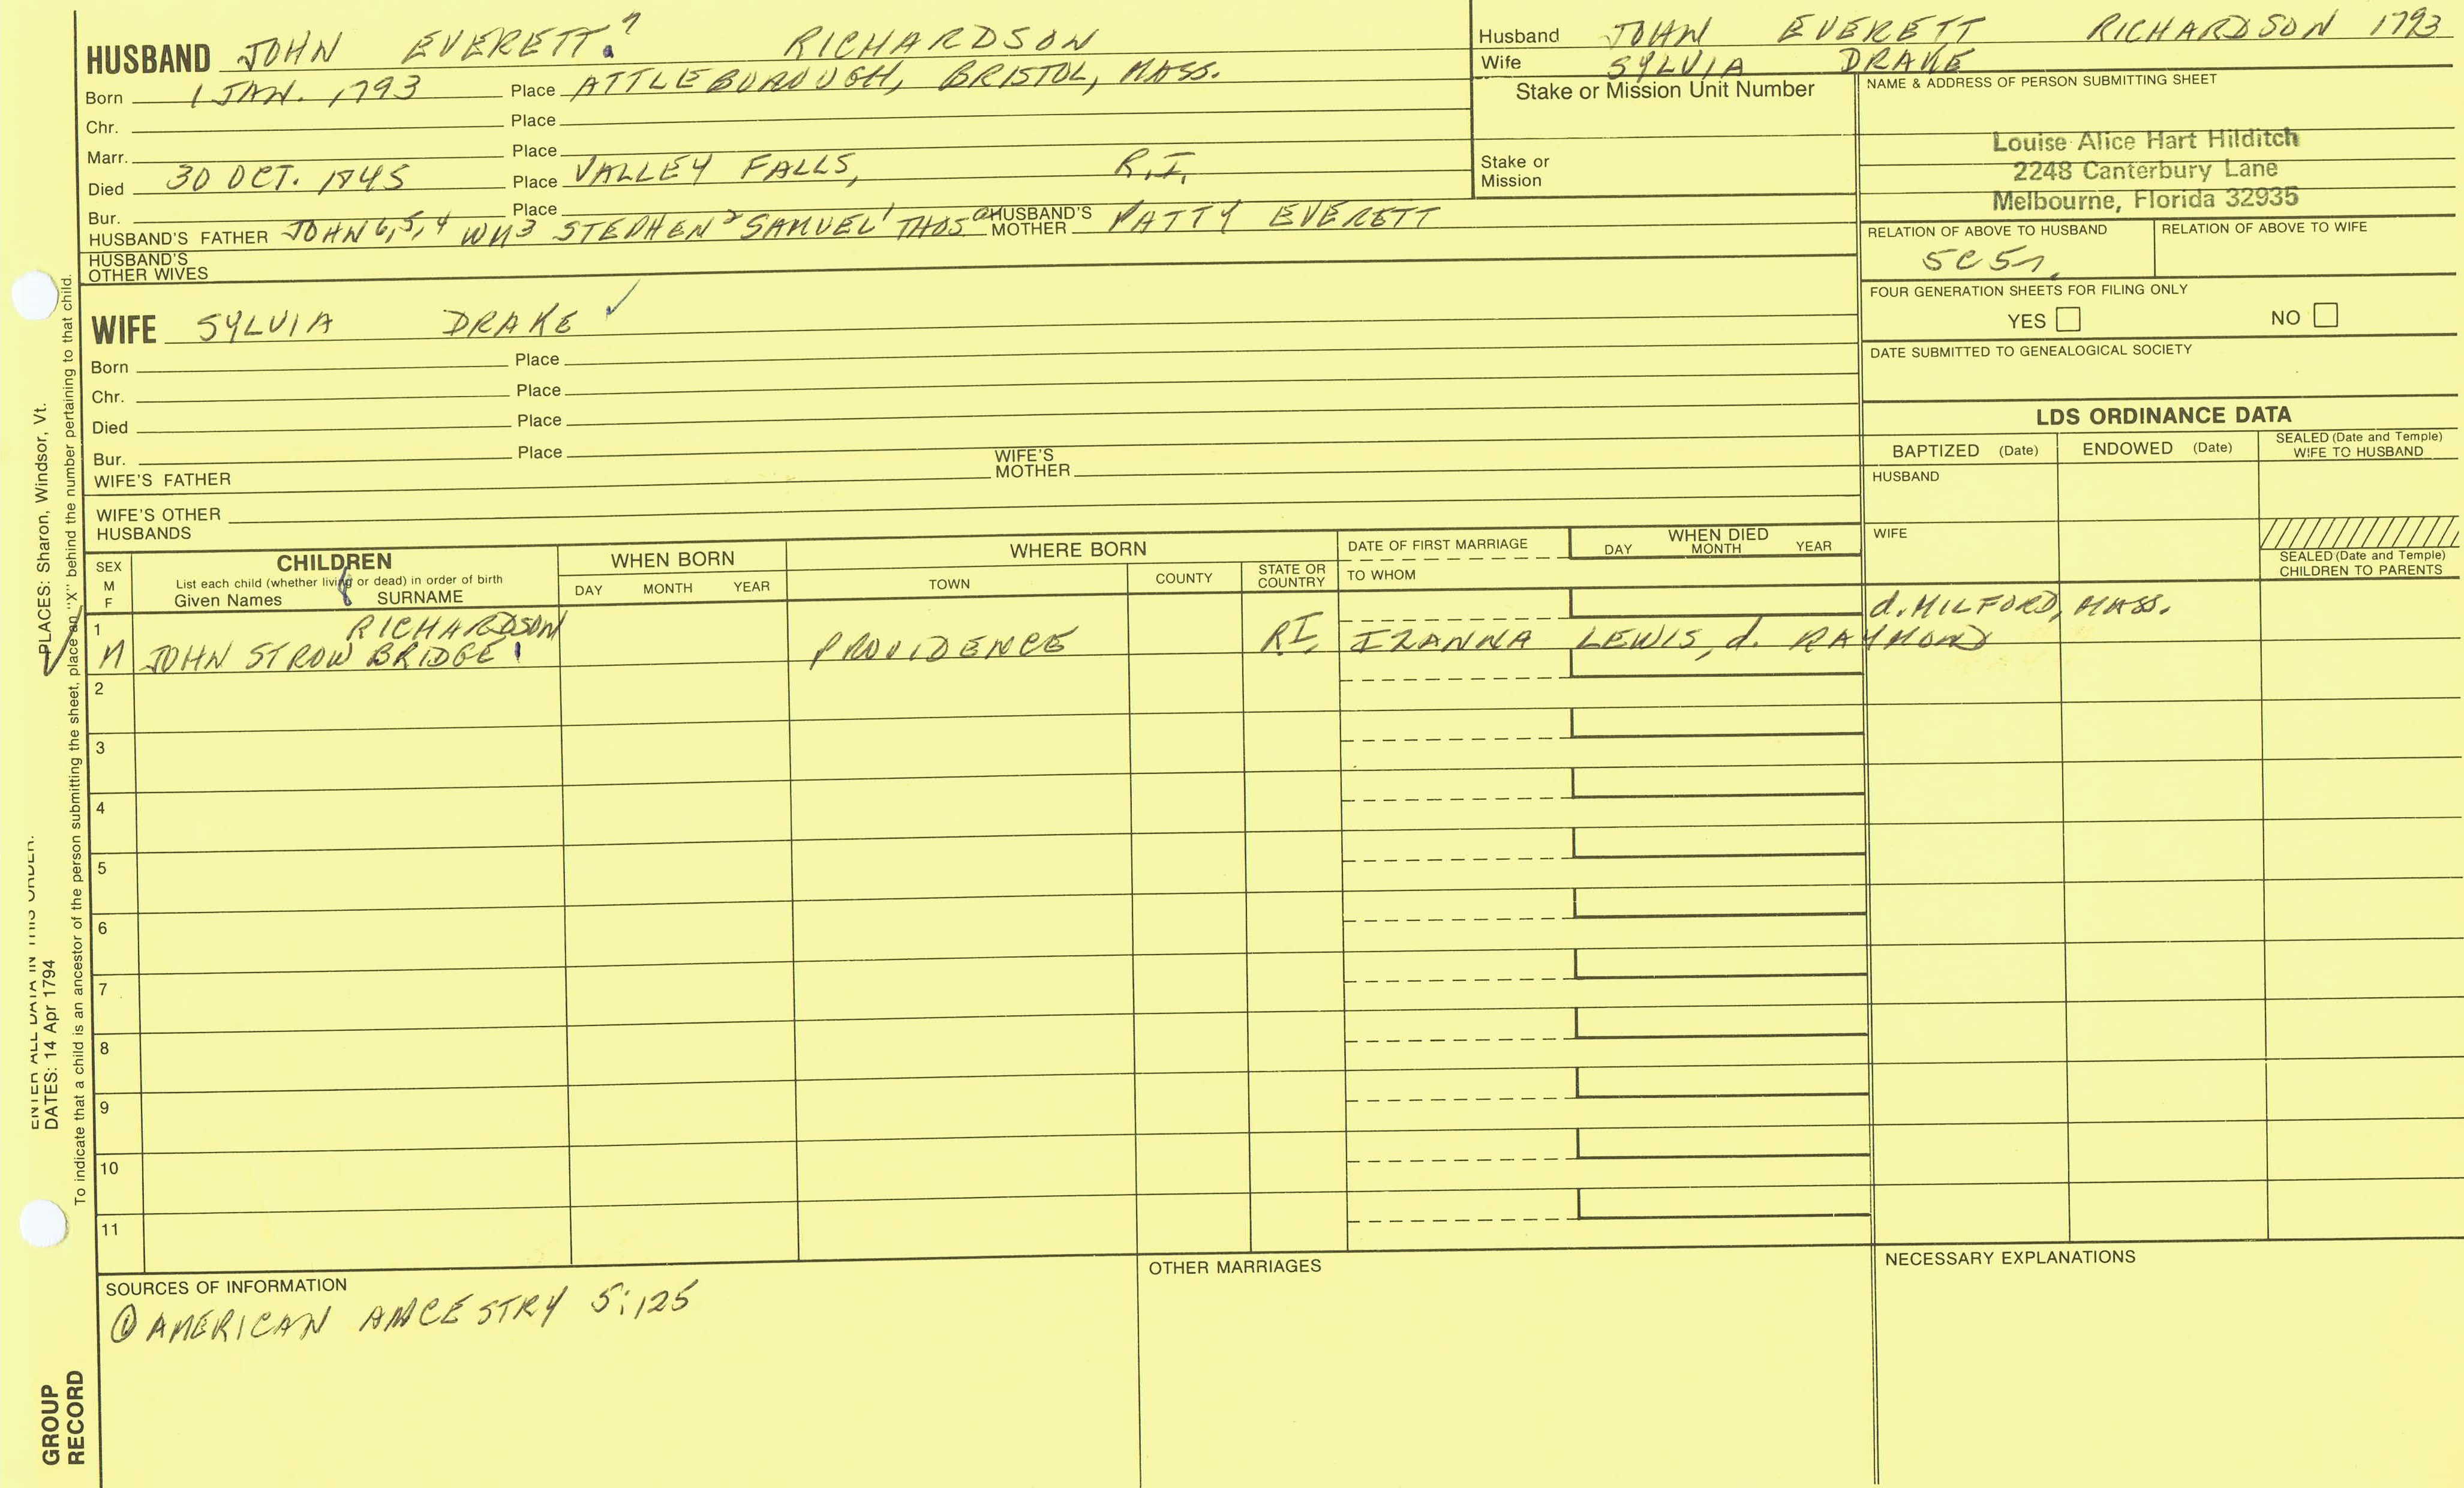 HUSBAND JOHN EVERETT.7 RICHARDSON
Born 1 JAN. 1793 Place ATTLEBOROUGH, BRISTOL, MASS.
Chr. Place
Marr. Place
Died 30 OCT. 1845 Place VALLEY FALLS, R.I.
Bur. Place
HUSBAND'S FATHER JOHN 6,5,4 WM3 STEPHEN2 SAMUEL1 THOS HUSBAND'S MOTHER PATTY EVERETT
HUSBAND'S OTHER WIVES
WIFE SYLVIA DRAKE ✓
Born Place
Chr. Place
Died Place
Bur. Place
WIFE'S FATHER WIFE'S MOTHER
WIFE'S OTHER HUSBANDS
Husband JOHN EVERETT RICHARDSON 1793
Wife SYLVIA DRAKE
Stake or Mission Unit Number
Stake or Mission
NAME & ADDRESS OF PERSON SUBMITTING SHEET
Louise Alice Hart Hilditch
2248 Canterbury Lane
Melbourne, Florida 32935
RELATION OF ABOVE TO HUSBAND RELATION OF ABOVE TO WIFE
5C5r.
FOUR GENERATION SHEETS FOR FILING ONLY
YES NO
DATE SUBMITTED TO GENEALOGICAL SOCIETY
LDS ORDINANCE DATA
BAPTIZED (Date) ENDOWED (Date) SEALED (Date and Temple) WIFE TO HUSBAND
HUSBAND
WIFE
SEALED (Date and Temple) CHILDREN TO PARENTS
SEX M F
CHILDREN
List each child (whether living or dead) in order of birth
Given Names 8 SURNAME
WHEN BORN
DAY MONTH YEAR
WHERE BORN
TOWN COUNTY STATE OR COUNTRY
DATE OF FIRST MARRIAGE
TO WHOM
WHEN DIED
DAY MONTH YEAR
1 RICHARDSON d. MILFORD, MASS.
M JOHN STROWBRIDGE PROVIDENCE RI, IZANNA LEWIS, d. RAYMOND
2
3
4
5
6
7
8
9
10
11
SOURCES OF INFORMATION
① AMERICAN ANCESTRY 5:125
OTHER MARRIAGES
NECESSARY EXPLANATIONS
ENTER ALL DATA IN THIS ORDER:
DATES: 14 Apr 1794 PLACES: Sharon, Windsor, Vt.
To indicate that a child is an ancestor of the person submitting the sheet, place an "X" behind the number pertaining to that child.
GROUP
RECORD